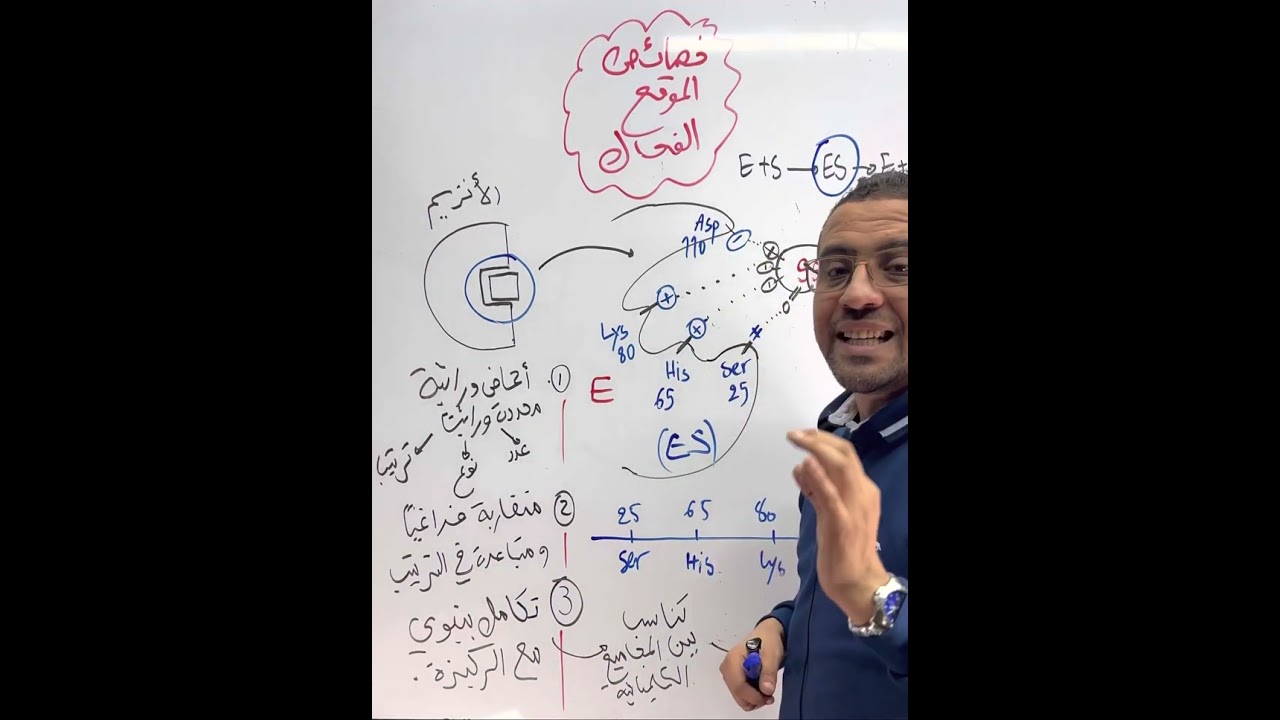 خصائص
الموقع
الفعال
E+S → ES → E+
الأنزيم
Asp
110
Lys
80
His
65
Ser
25
E
(ES)
① أحماض وراثية
محددة وراثيًا
عدد نوع ترتيبا
② متقاربة فراغيًا
ومتباعدة في الترتيب
25 65 80
Ser His Lys
③ تكامل بنيوي
مع الركيزة.
تناسب
بين المجاميع
الكيميائية